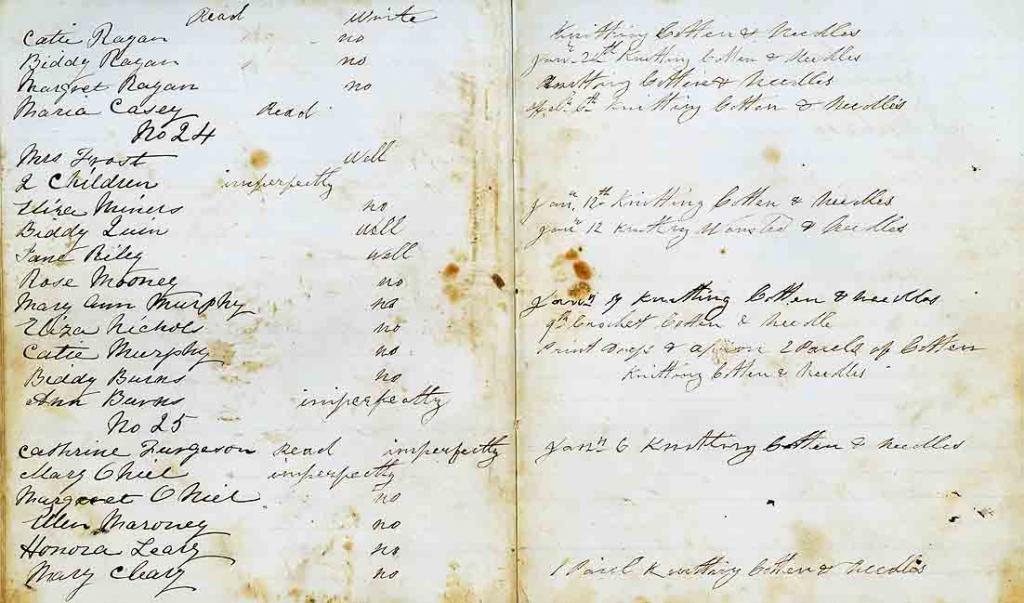 Read Write
Catie Ragan no
Biddy Ragan no
Margret Ragan no
Maria Casey Read
No 24
Mrs Frost Well
2 Children imperfectly
Eliza Miners no
Biddy Quin Well
Jane Riley Well
Rose Mooney no
Mary Ann Murphy no
Eliza Nichols no
Catie Murphy no
Biddy Burns no
Ann Burns imperfectly
No 25
Cathrine Furgeson Read imperfectly
Mary O Niel imperfectly
Margaret O Niel no
Ellen Maroney no
Honora Leary no
Mary Cleary no
Knitting Cotten & Needles
Janr 24th Knitting Cotten & Needles
Knitting Cotten & Needles
Feb 6th Knitting Cotten & Needles
Janr 12th Knitting Cotten & Needles
Janr 12 Knitting Worsted & Needles
Janry 9 Knitting Cotten & needles
9th Crochet Cotten & Needle
Print Dress & apron 2 Parcels of Cotten
Knitting Cotten & Needles
Janry 6 Knitting Cotten & needles
1 Parcel Knitting Cotten & Needles